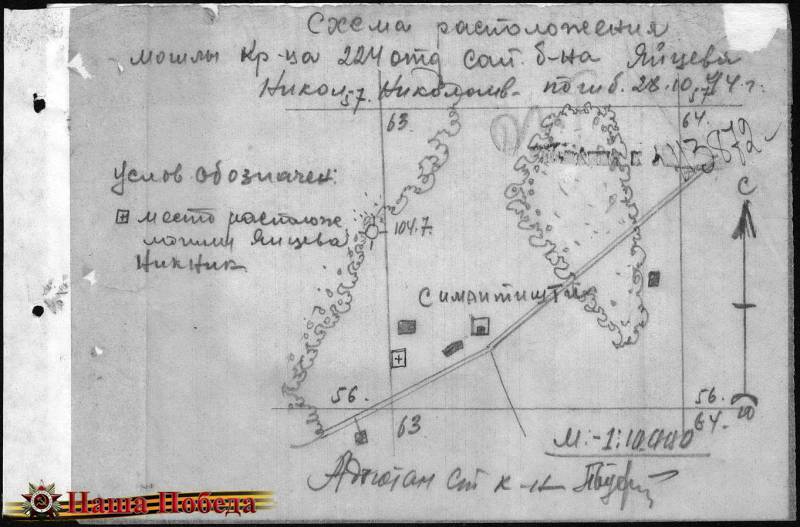 Схема расположения
могилы кр-ца 224 отд сап. б-на Яйцева
Никол. Николаев. погиб. 28.10.44 г.
57. 57
63. 64.
3872
Услов обозначен:
место располож
могили Яйцева
Ник Ник
104.7.
С
Симаитишки
56. 56.
63 64.
Ю
М:-1:10.000
Адютан Ст л-нт
Наша Победа